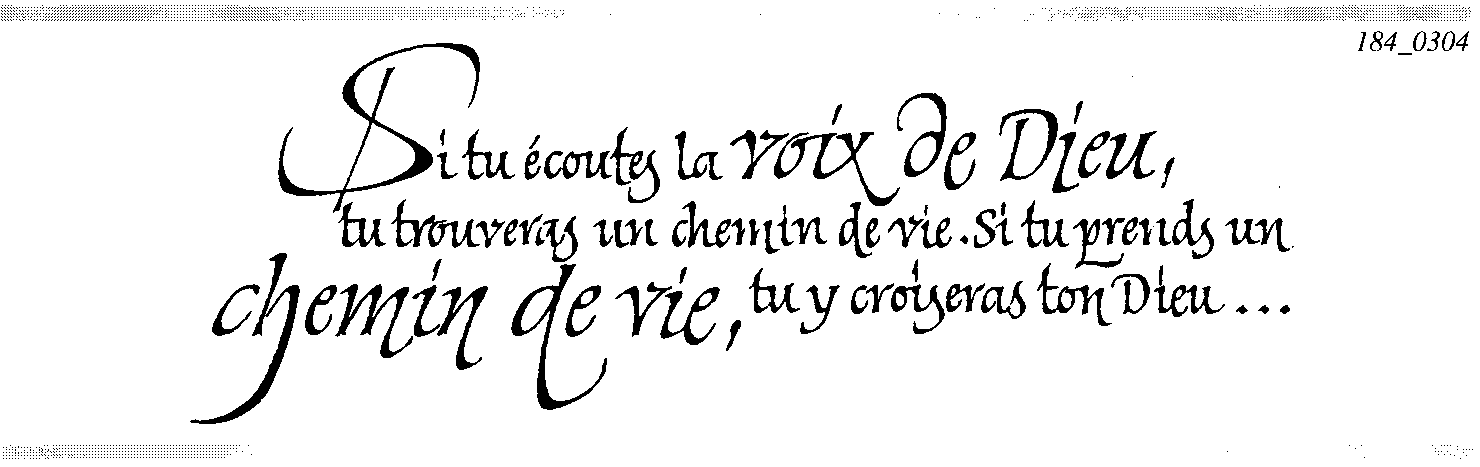 184_0304
Si tu écoutes la voix de Dieu,
tu trouveras un chemin de vie. Si tu prends un
chemin de vie, tu y croiseras ton Dieu...